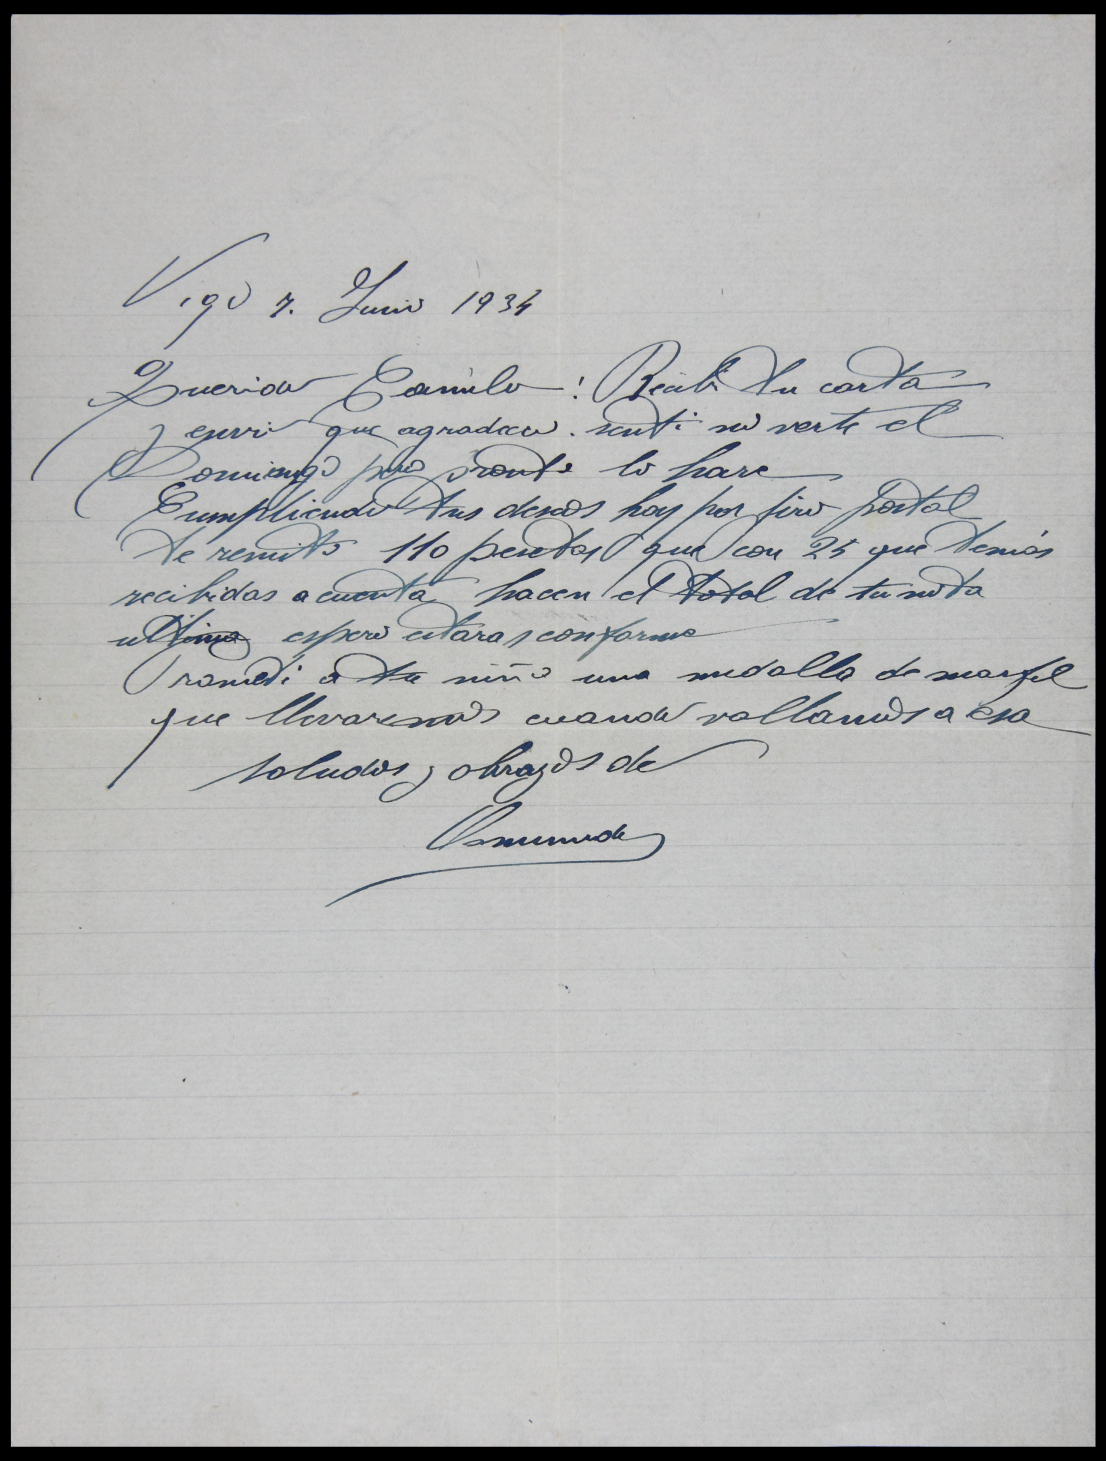 Vigo 7. Junio 1934
Querido Camilo: Recibi tu carta
y envio que agradeco. senti no verte el
Domingo pero pronto lo hare
Cumpliendo tus deseos hoy por giro postal
te remito 110 pesetas que con 25 que tenias
recibidas a cuenta hacen el total de tu nota
ultima espero estaras conforme
Prometi a tu niño una medalla de marfil
que llevaremos cuando vallamos a esa
saludos y abrazos de